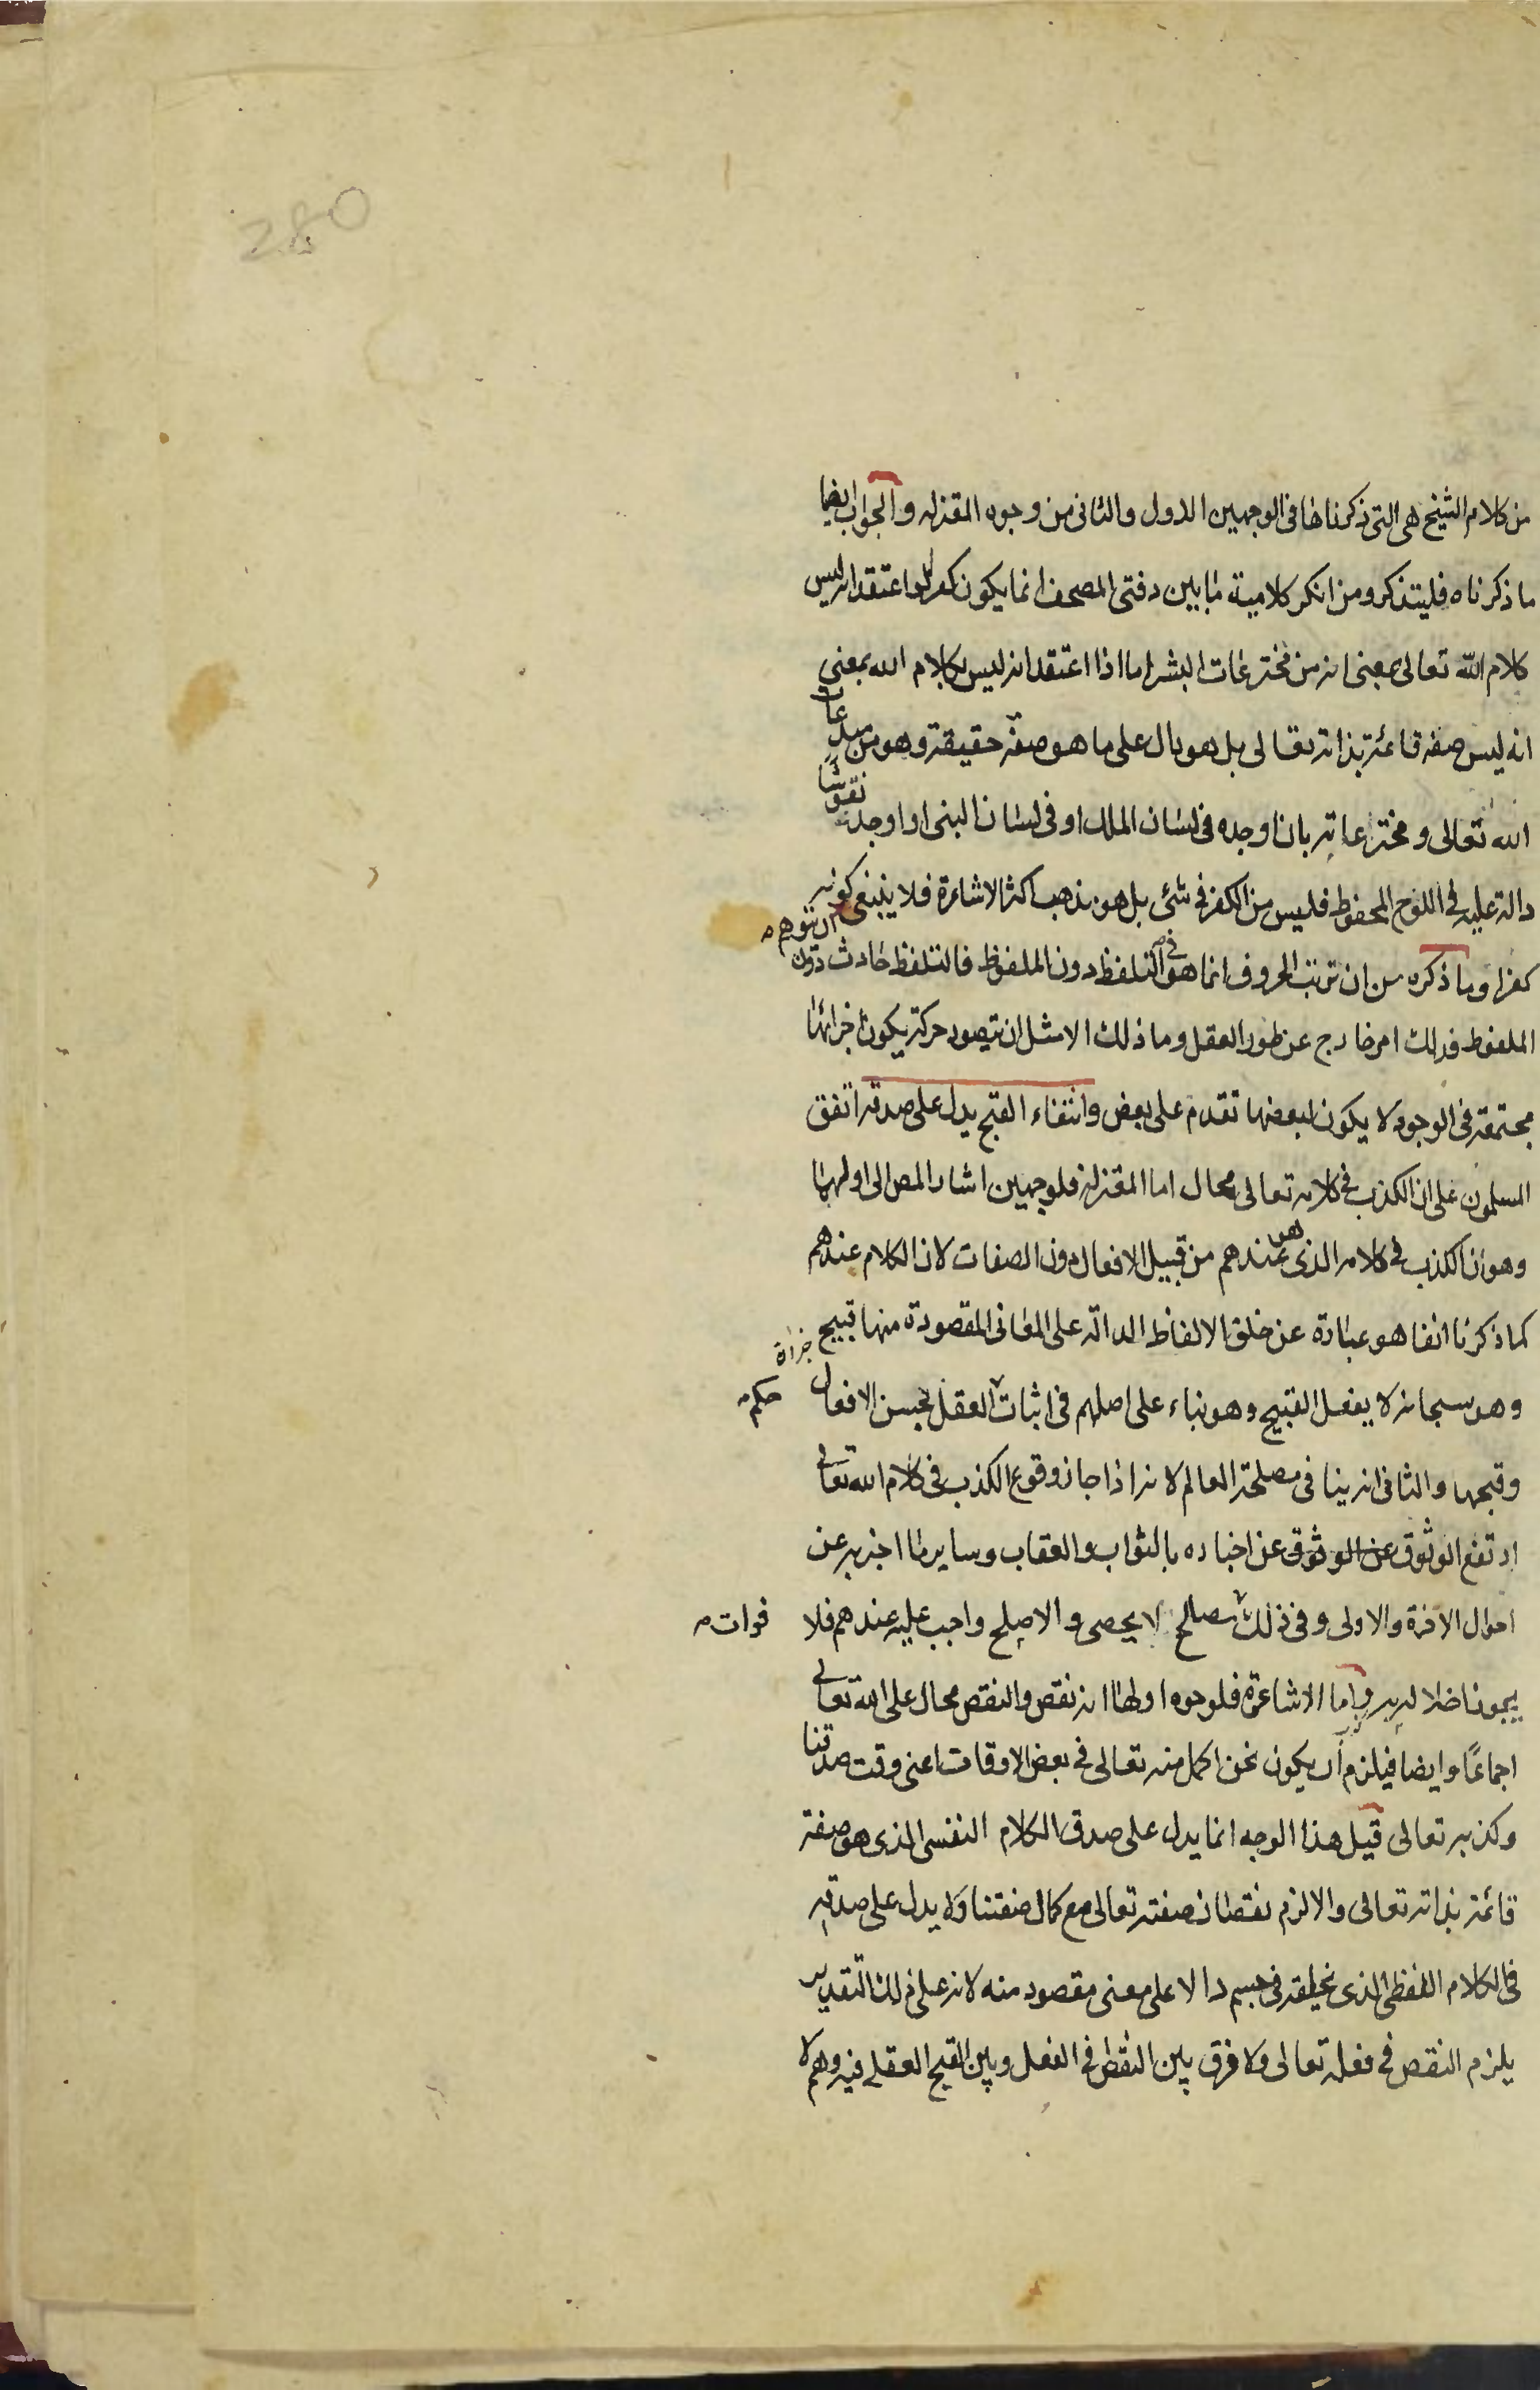 280
من كلام الشيخ هى التى ذكرناها فى الوجهين الاول والثانى من وجوه المعتزله والجواب ايضا
ما ذكرناه فليتذكر ومن انكر كلامية ما بين دفتى المصحف انما يكون كفرا لو اعتقد انه ليس
كلام الله تعالى بمعنى انه من مخترعات البشر اما اذا اعتقد انه ليس بكلام الله بمعنى
انه ليس صفة قائمة بذاته تعالى بل هو دال على ما هو صفة حقيقة وهو من مبدعات
الله تعالى ومخترعاته بان اوجده فى لسان الملك او فى لسان النبى او اوجد نقوشا
دالة عليه فى اللوح المحفوظ فليس من الكفر فى شئ بل هو مذهب اكثر الاشاعرة فلا ينبغى ان يتوهم كونه
كفرا وما ذكره من ان ترتب الحروف انما هو فى التلفظ دون الملفوظ فالتلفظ حادث دون
الملفوظ فذلك امر خارج عن طور العقل وما ذلك الا مثل ان يتصور حركة يكون اجزائها
مجتمعة فى الوجود لا يكون لبعضها تقدم على بعض وانتفاء القبح يدل على صدقه اتفق
المسلمون على ان الكذب فى كلامه تعالى محال اما المعتزلة فلوجهين اشار المص الى اولهما
وهو ان الكذب فى كلامه الذى هو عندهم من قبيل الافعال دون الصفات لان الكلام عندهم
كما ذكرنا انفا هو عبارة عن خلق الالفاظ الدالة على المعانى المقصودة منها قبيح
وهو سبحانه لا يفعل القبيح وهو بناء على اصلهم فى اثبات حكم العقل بحسن الافعال
وقبحها والثانى انه ينافى مصلحة العالم لانه اذا جاز وقوع الكذب فى كلام الله تعالى
ارتفع الوثوق عن الوثوق عن اخباره بالثواب والعقاب وساير ما اخبر به عن
احوال الاخرة والاولى وفى ذلك فوات مصالح لا يحصى والاصلح واجب عليه عندهم فلا
يجوز اخلاله به واما الاشاعرة فلوجوه اولها انه نقص والنقص محال على الله تعالى
اجماعا وايضا فيلزم ان يكون نحن اكمل منه تعالى فى بعض الاوقات اعنى وقت صدقنا
وكذبه تعالى قيل هذا الوجه انما يدل على صدق الكلام النفسى الذى هو صفة
قائمة بذاته تعالى والا لزم نقصان صفته تعالى مع كمال صفتنا ولا يدل على صدقه
فى الكلام اللفظى الذى يخلقه فى جسم دالا على معنى مقصود منه لانه على ذلك التقدير
يلزم النقص فى فعله تعالى ولا فرق بين النقص فى الفعل وبين القبح العقلى فيه وهم لا